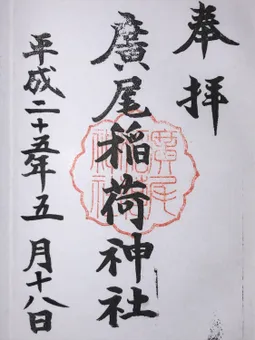 奉拝
廣尾稲荷神社
平成二十五年五月十八日